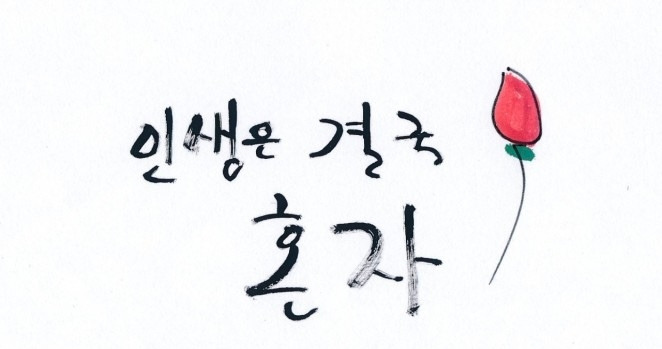 인생은 결국
혼자